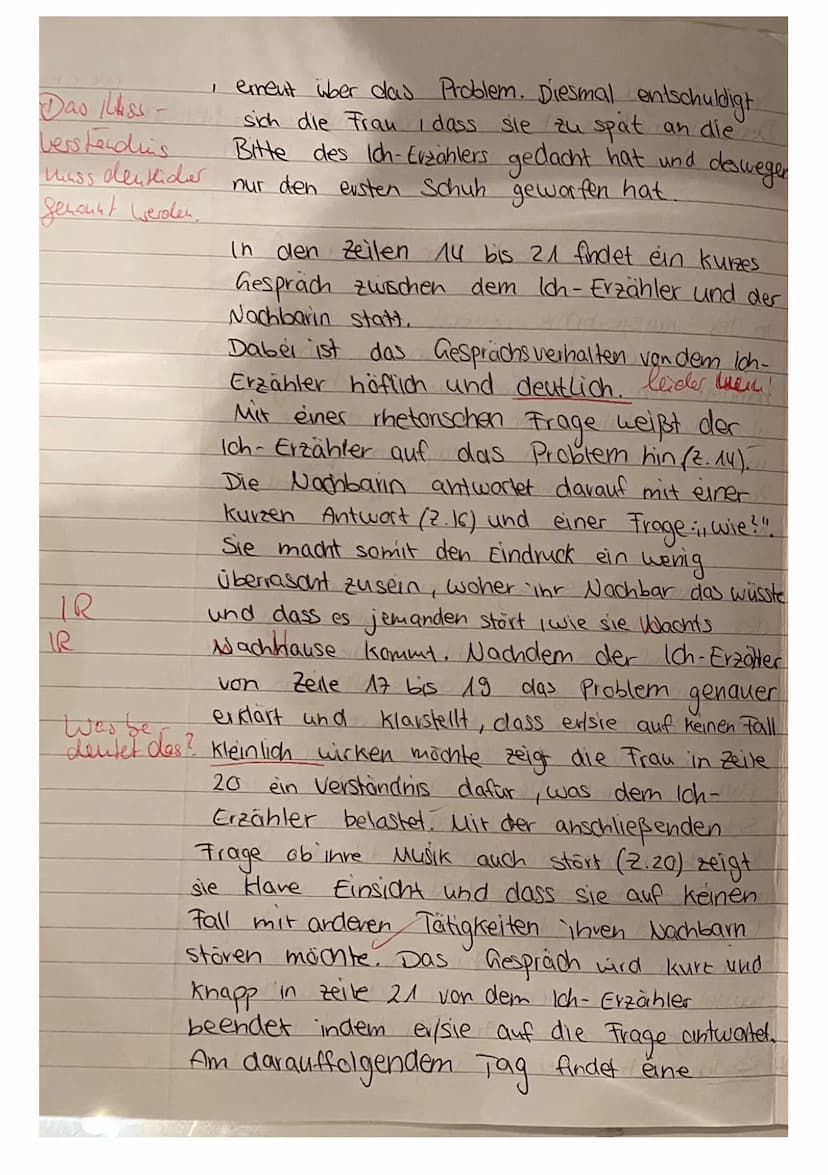 erneut über das Problem. Diesmal entschuldigt
sich die Frau, dass sie zu spät an die
Bitte des Ich-Erzählers gedacht hat und deswegen
nur den ersten Schuh geworfen hat.
Das Miss-
verständnis
muss deutlicher
genannt werden.
In den Zeilen 14 bis 21 findet ein kurzes
Gespräch zwischen dem Ich-Erzähler und der
Nachbarin statt.
Dabei ist das Gesprächsverhalten von dem Ich-
Erzähler höflich und deutlich. leider nein!
Mit einer rhetorischen Frage weißt der
Ich-Erzähler auf das Problem hin (Z.14).
Die Nachbarin antwortet darauf mit einer
kurzen Antwort (Z.16) und einer Frage: „wie?".
Sie macht somit den Eindruck ein wenig
überrascht zusein, woher ihr Nachbar das wüsste
und dass es jemanden stört, wie sie Nachts
NachHause kommt. Nachdem der Ich-Erzähler
von Zeile 17 bis 19 das Problem genauer
erklärt und klarstellt, dass er/sie auf keinen Fall
kleinlich wirken möchte zeigt die Frau in Zeile
20 ein Verständnis dafür, was dem Ich-
Erzähler belastet. Mit der anschließenden
Frage ob ihre Musik auch stört (Z.20) zeigt
sie klare Einsicht und dass sie auf keinen
Fall mit anderen Tätigkeiten ihren Nachbarn
stören möchte. Das Gespräch wird kurz und
knapp in Zeile 21 von dem Ich-Erzähler
beendet indem er/sie auf die Frage antwortet.
Am darauffolgendem Tag findet eine
IR
IR
Was be-
deutet das?